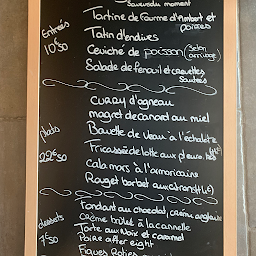 Saveur du moment
Tartine de fourme d'Ambert et
poires
Entrées
10€50
Tatin d'endives
Ceviché de poisson (selon
arrivage)
Salade de fenouil et crevettes
sautées
plats
22€50
curry d'agneau
magret de canard au miel
Bavette de veau à l'échalote
Fricassée de lotte aux pleurotes
calamars à l'armoricaine
Rouget barbet au citron (+1€)
desserts
7€50
Fondant au chocolat, crème anglaise
Crème brûlée à la cannelle
Tarte aux noix et caramel
Poire after eight
Figues Roties